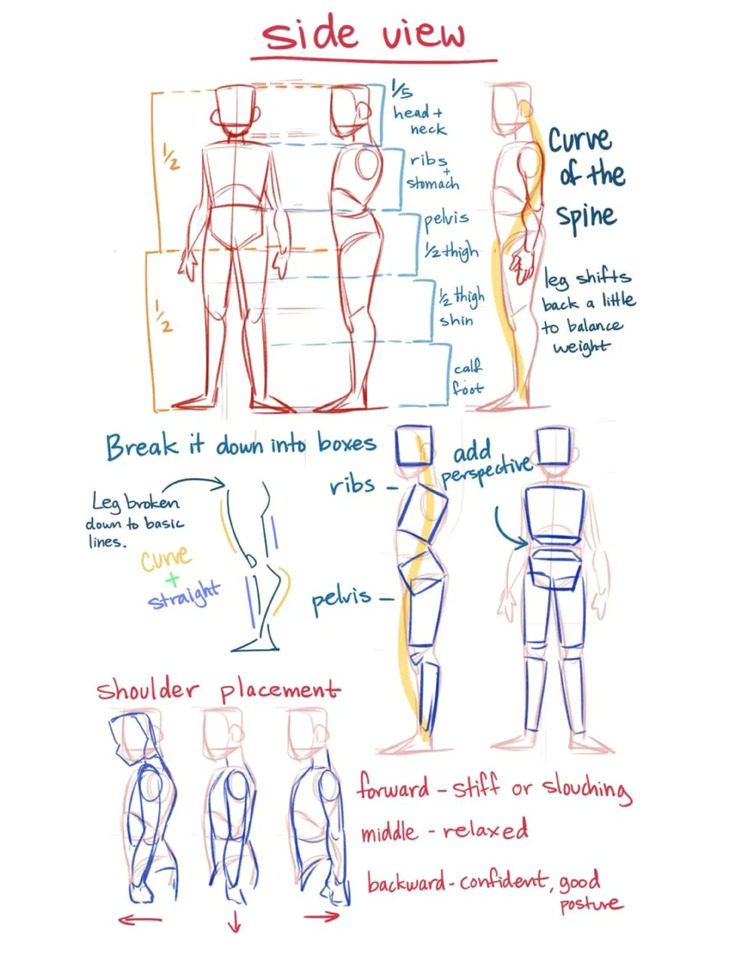 side view
1/2
1/2
1/5
head +
neck
ribs
+
stomach
pelvis
1/2 thigh
1/2 thigh
shin
calf
foot
Curve
of the
Spine
leg shifts
back a little
to balance
weight
Break it down into boxes
Leg broken
down to basic
lines.
curve
+
straight
ribs –
pelvis –
add
perspective
shoulder placement
forward - stiff or slouching
middle - relaxed
backward - confident, good
posture